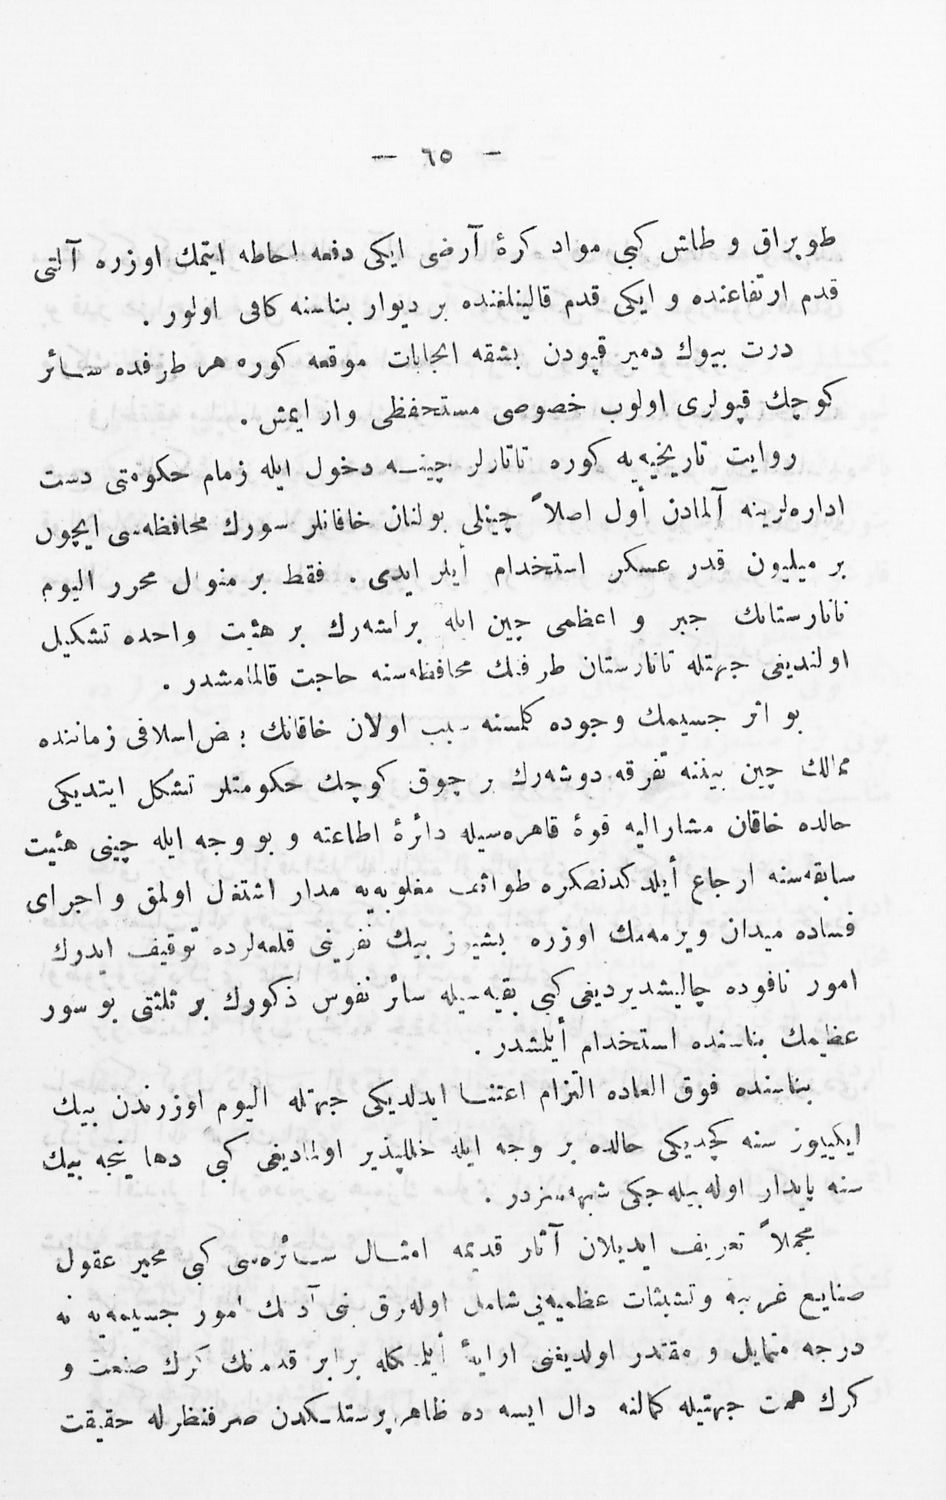 — ٦٥ —
طوپراق و طاش كبی مواد كرهٔ آرضی ایكی دفعه احاطه ایتمك اوزره آلتی
قدم ارتفاعنده و ایكی قدم قالینلغنده بر دیوار بناسنه كافی اولور .
درت بیوك دمیر قپودن بشقه ایجابات موقعه كوره هر طرفده سائر
كوچك قپولری اولوب خصوصی مستحفظی وار ایمش .
روایت تاریخیه‌یه كوره تاتارلر چینه دخول ایله زمام حكومتی دست
اداره‌لرینه آلمادن أول اصلاً چینلی بولنان خاقانلر سورك محافظه‌سی ایچون
بر میلیون قدر عسكر استخدام أیلر ایدی . فقط بر منوال محرر الیوم
تاتارستانك جبر و اعظمی چین ایله براشه‌رك بر هئیت واحده تشكیل
اولندیغی جهتله تاتارستان طرفنك محافظه‌سنه حاجت قالمامشدر .
بو اثر جسیمك وجوده كلمسنه سبب اولان خاقانك بعض اسلافی زماننده
ممالك چین بیننه تفرقه دوشه‌رك بر چوق كوچك حكومتلر تشكل ایتدیكی
حالده خاقان مشارالیه قوهٔ قاهره‌سیله دائرهٔ اطاعته و بو وجه ایله چینی هئیت
سابقه‌سنه ارجاع أیلدكدنصكره طوائف مغلوبه‌یه مدار اشتغل اولمق و اجرای
فساده میدان ویرمه‌مك اوزره بشیوز بیك نفرینی قلعه‌لرده توقیف ایدرك
امور نافوده چالیشدیردیغی كبی بقیه‌سیله سائر نفوس ذكورك بر ثلثنی بو سور
عظیمك بناسنده استخدام أیلمشدر .
بناسنده فوق العاده التزام اعتنا ایدلدیكی جهتله الیوم اوزرندن بیك
ایكییوز سنه كچدیكی حالده بر وجه ایله خللپذیر اولمادیغی كبی دها نیجه بیك
سنه پایدار اوله‌بیله‌جكی شبهه‌سزدر .
مجملاً تعریف ایدیلان آثار قدیمه امثال سائره‌سی كبی محیر عقول
صنایع غریبه و تشبثات عظمیه‌یی شامل اوله‌رق بنی آدمك امور جسیمه‌یه نه
درجه متمایل و مقتدر اولدیغنی ارایهٔ أیلمكله برابر قدمه‌نك كرك صنعت و
كرك همت جهتیله كمالنه دال ایسه ده ظاهرپرستلكدن صرفنظرله حقیقت